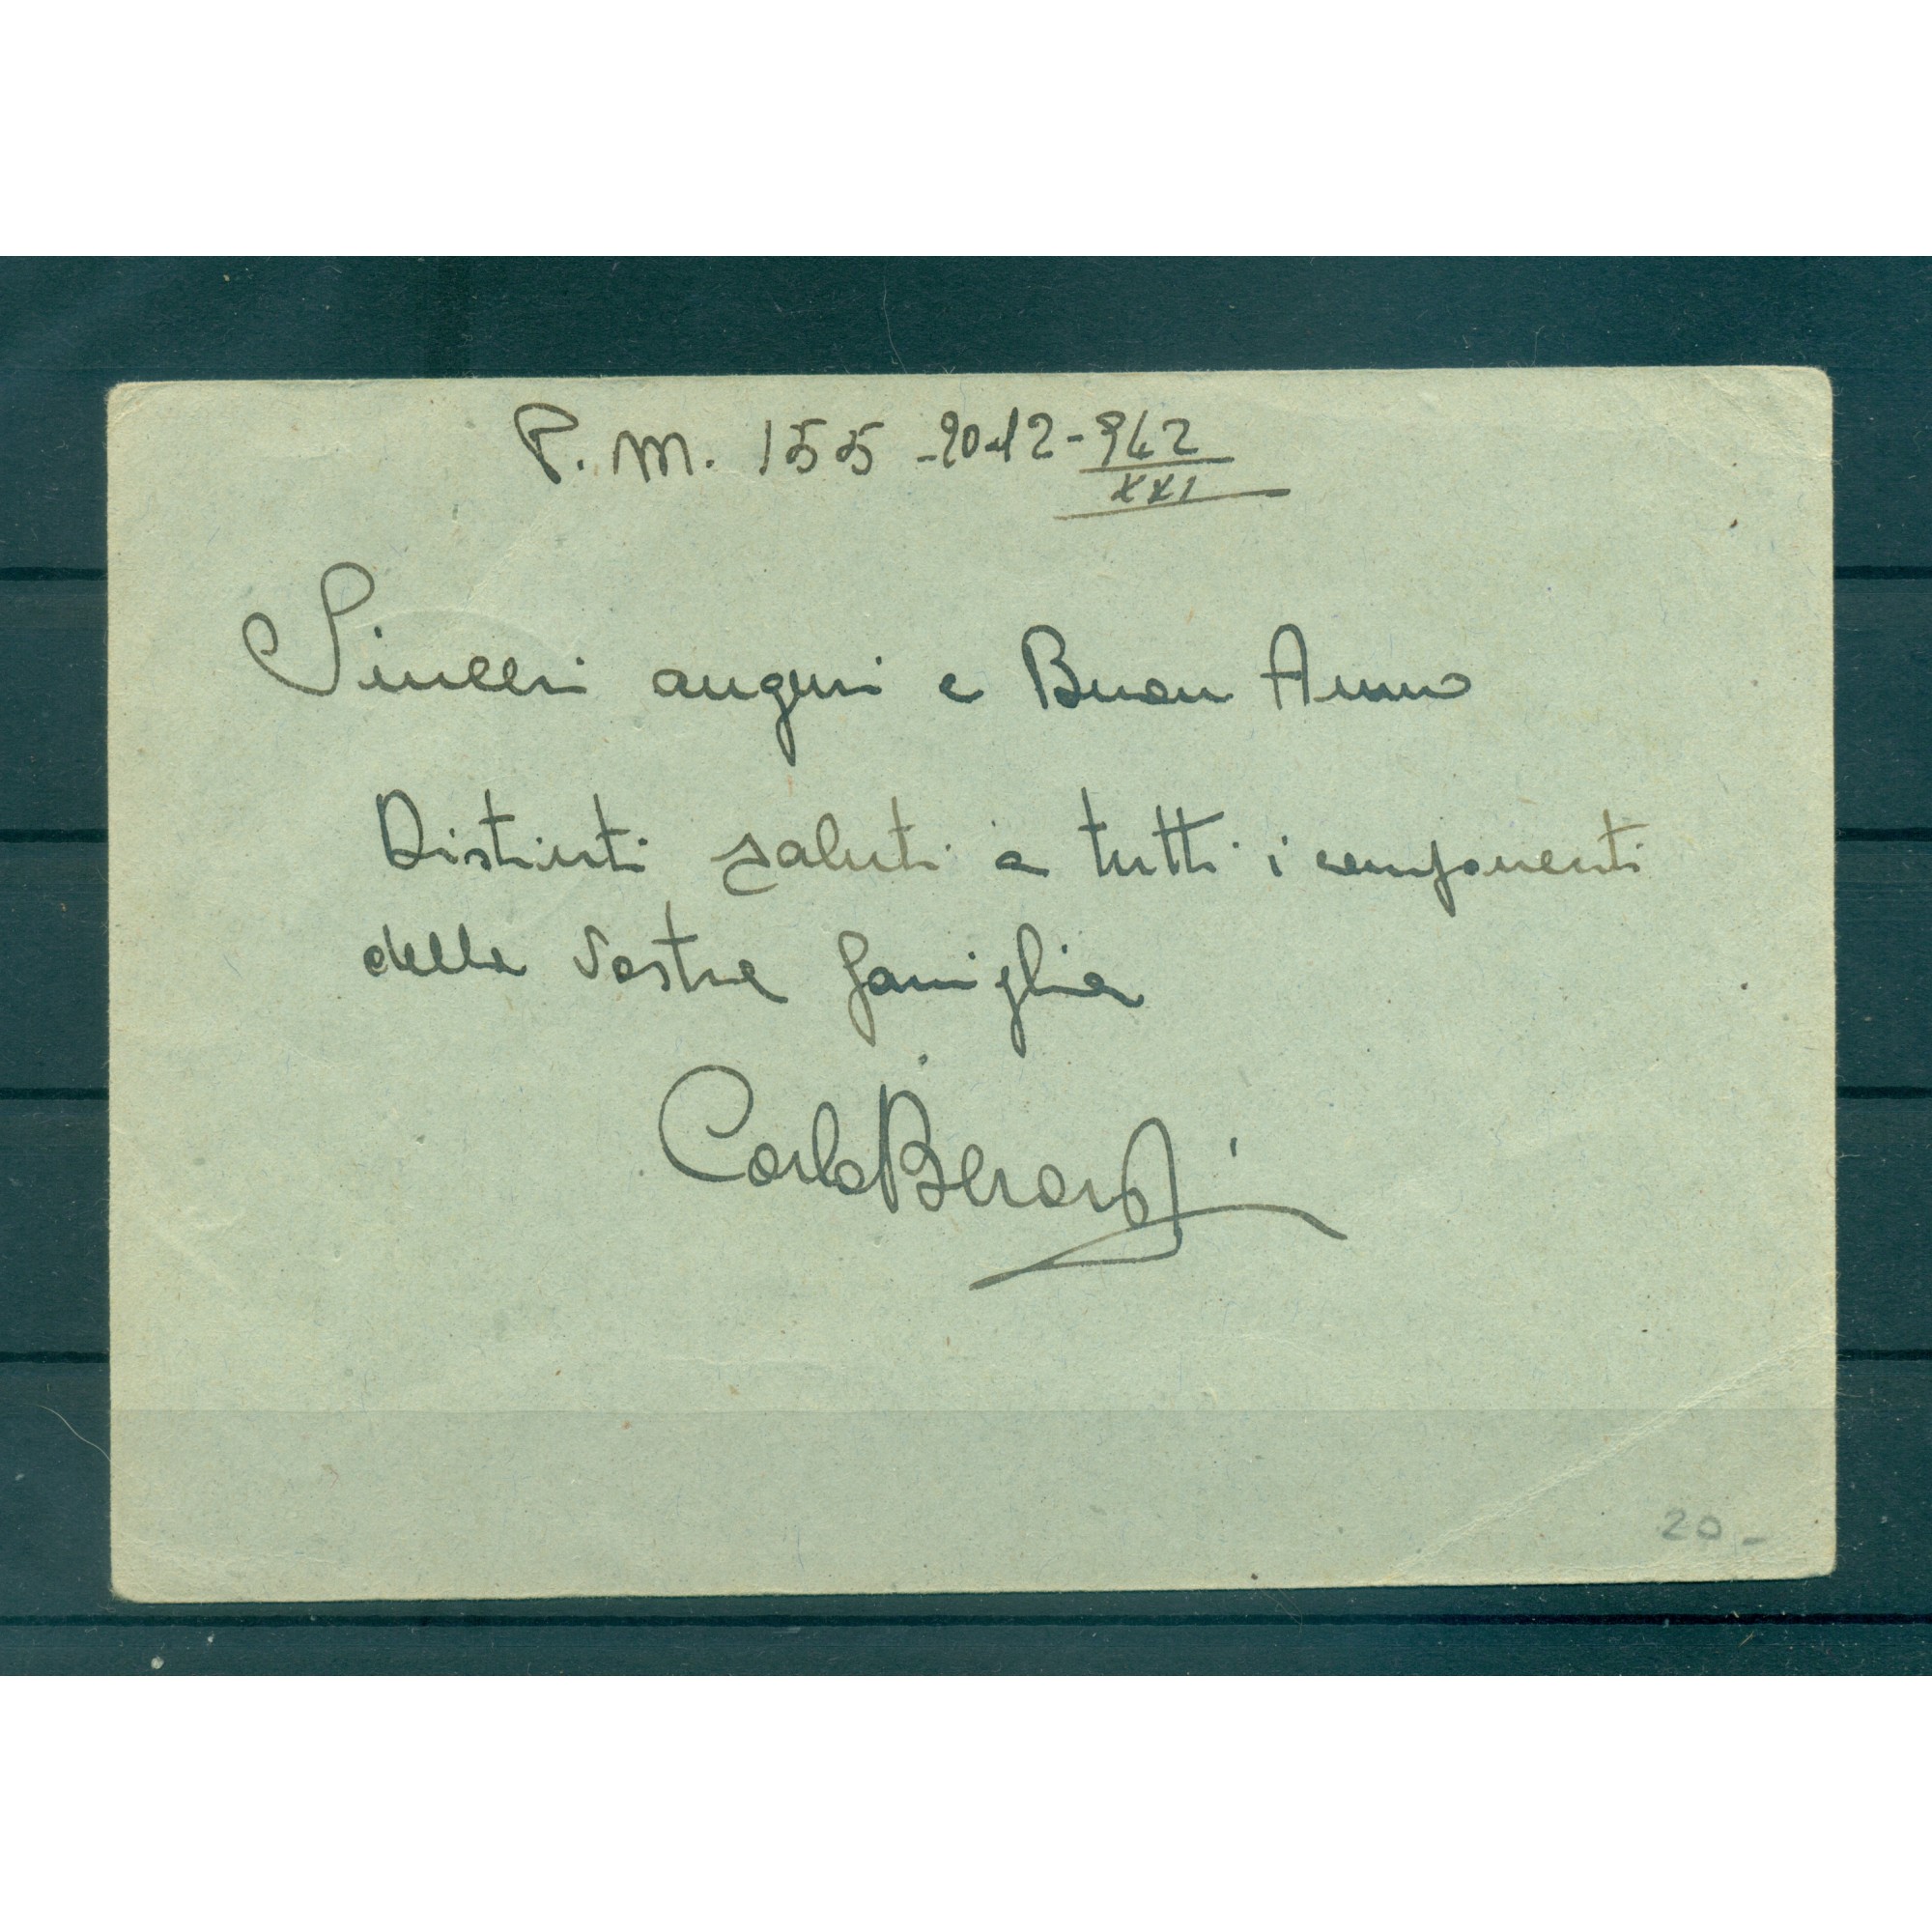 P. M. 155 -20-12-942
XXI
Sinceri auguri e Buon Anno
Distinti saluti a tutti i componenti
della Vostra famiglia
Carlo
20 -